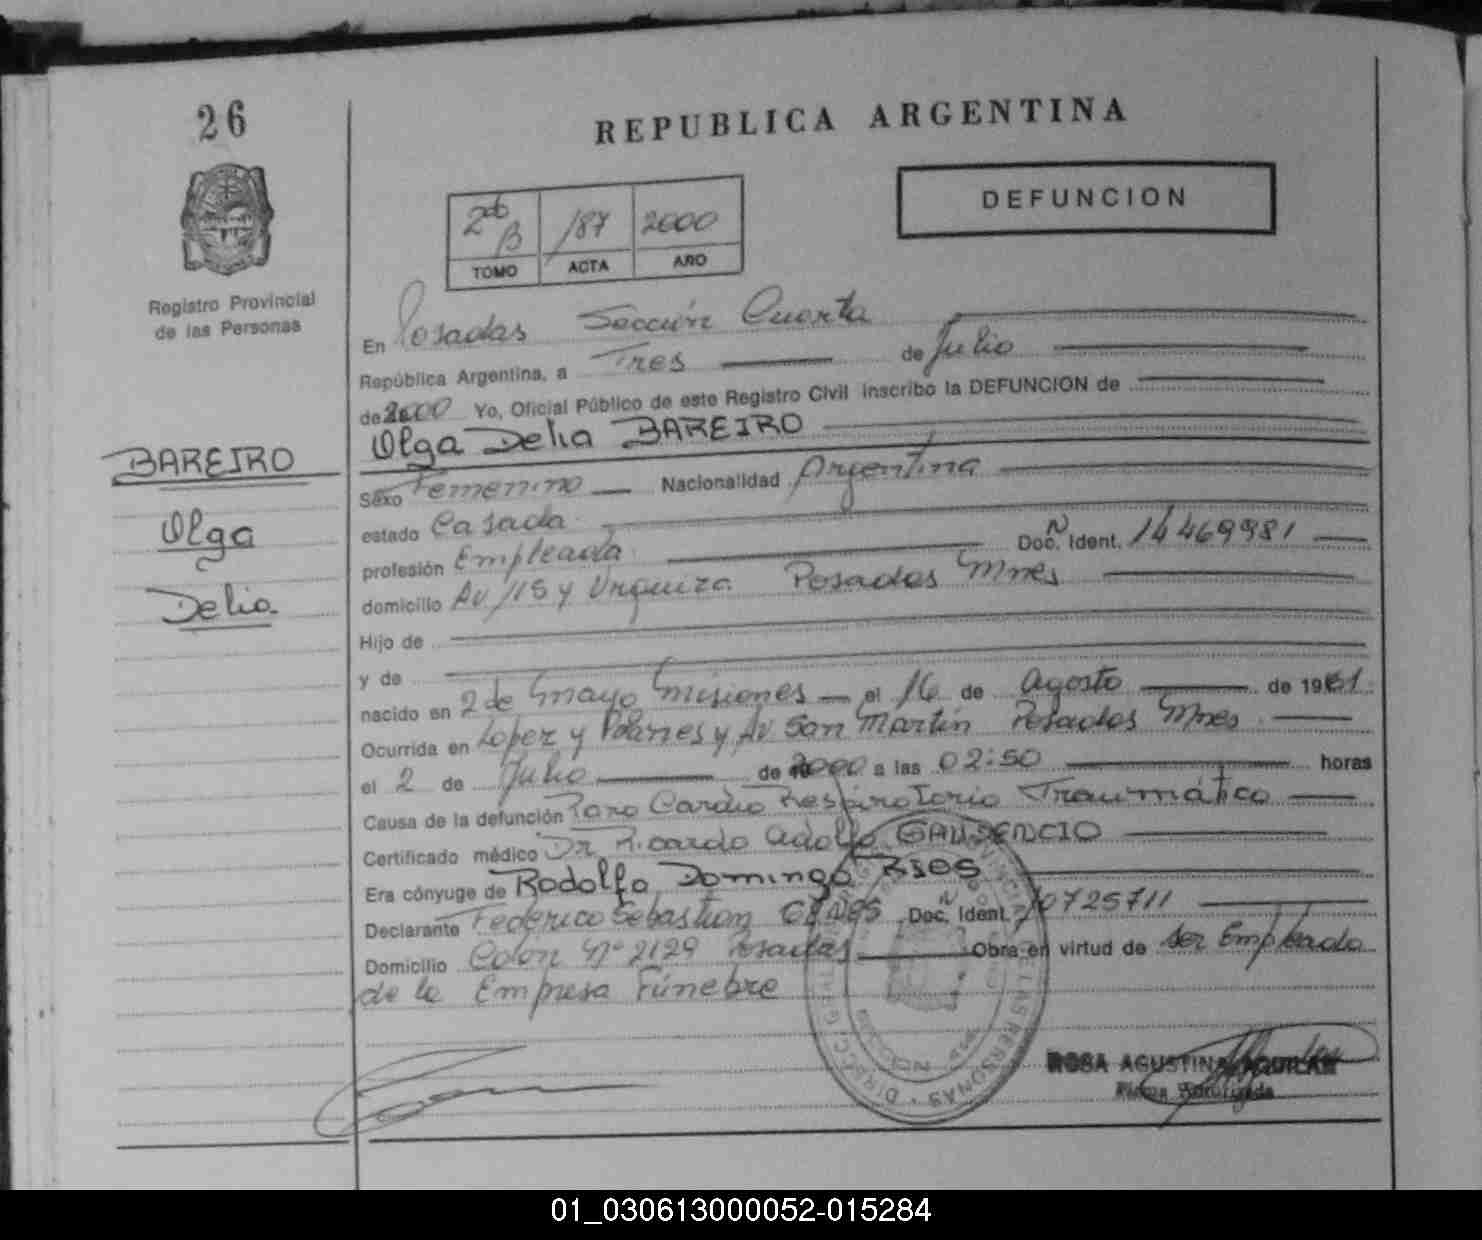 26
REPUBLICA ARGENTINA
DEFUNCION
2do B 187 2000
TOMO ACTA AÑO
Registro Provincial
de las Personas
En Posadas Sección Cuarta
República Argentina, a Tres de Julio
de 2000 Yo, Oficial Público de este Registro Civil inscribo la DEFUNCION de
Olga Delia BAREIRO
BAREIRO
Olga
Delia
Sexo Femenino Nacionalidad Argentina
estado Casada
profesión Empleada Doc. Ident. N 14469981
domicilio Av 115 y Urquiza Posadas Mnes
Hijo de
y de
nacido en 2 de Mayo Misiones el 16 de Agosto de 1961
Ocurrida en Lopez y Planes y Av San Martín Posadas Mnes
el 2 de Julio de 2000 a las 02:50 horas
Causa de la defunción Paro Cardio Respiratorio Traumático
Certificado médico Dr. Ricardo Adolfo GAUDENCIO
Era cónyuge de Rodolfo Domingo
Declarante Federico Sebastian Doc. Ident. N
Domicilio Colon Nº 2129 Posadas Obra en virtud de ser Empleado
de la Empresa Fúnebre
ROSA AGUSTINA AGUILAR
Firma Autorizada
01_030613000052-015284